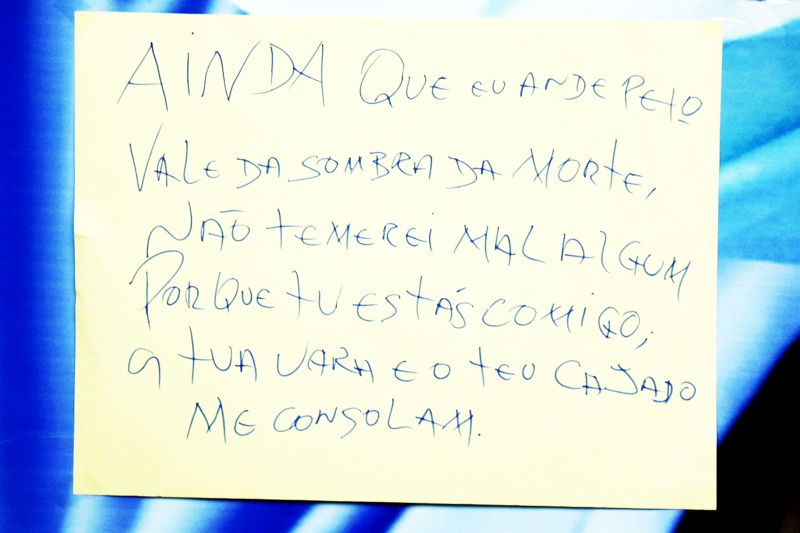 AINDA QUE EU ANDE PELO
VALE DA SOMBRA DA MORTE,
NÃO TEMEREI MAL ALGUM
PORQUE TU ESTÁS COMIGO;
a TUA VARA E O TEU CAJADO
ME CONSOLAM.